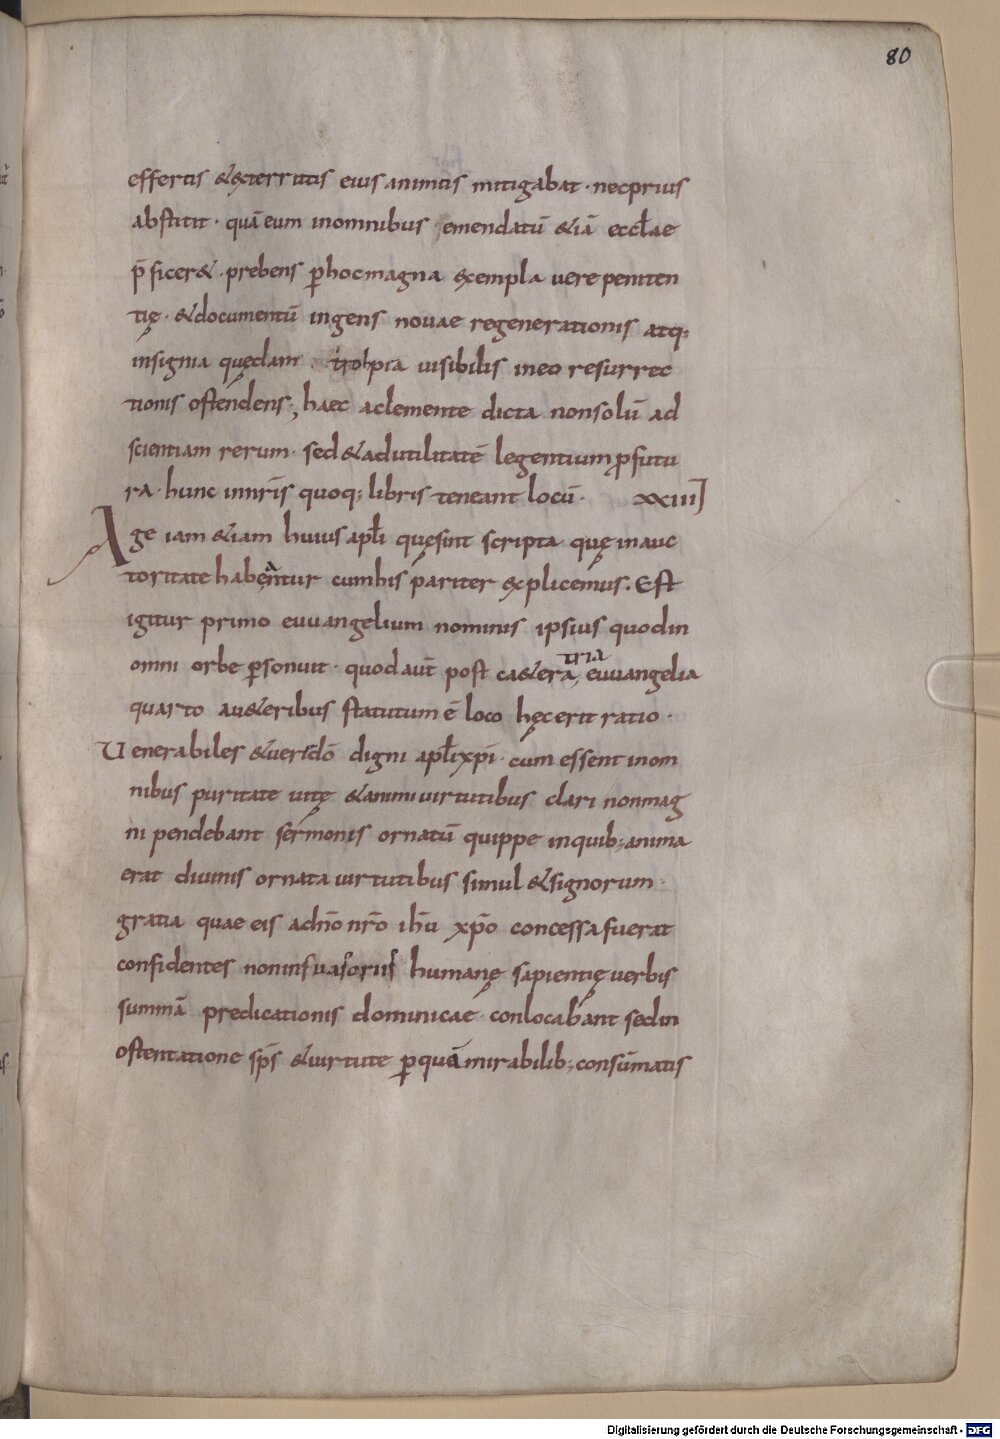 80
effertis &exterritis eius animis mitigabat · necprius
abstitit · quā eum inomnibus emendatū &iā eccłae
p̄ficer& · prebens ꝑhocmagna exempla vere peniten
tię · &documentū ingens novae regenerationis atq;
insignia quędam trohpia visibilis ineo resurrec
tionis ostendens; haec aclemente dicta nonsolū ad
scientiam rerum · sed &adutilitatē legentium ꝓfutu
ra · hunc innr̄is quoq; libris teneant locū · xxiiii
Age iam &iam huius apłi quęsint scripta quę inauc
toritate habentur cumhis pariter explicemus. Est
igitur primo euuangelium nominis ipsius quodin
omni orbe ꝑsonuit · quod aūt post c&era, euuangelia
tria
quarto au&eribus statutum ē loco hęcerit ratio ·
Venerabiles &ueridō digni apłi xp̄i · cum essent inom
nibus puritate uitę &animi uirtutibus clari nonmag
ni pendebant sermonis ornatū quippe inquib; anima
erat diuinis ornata uirtutibus simul &signorum ·
gratia quae eis adn̄o nr̄o ih̄u xp̄o concessa fuerat
confidentes noninsuasoriis humanę sapientię verbis
summā predicationis dominicae · conlocabant sedin
ostentatione sp̄s &uirtute ꝑquā mirabilib; consūmatis
Digitalisierung gefördert durch die Deutsche Forschungsgemeinschaft - DFG